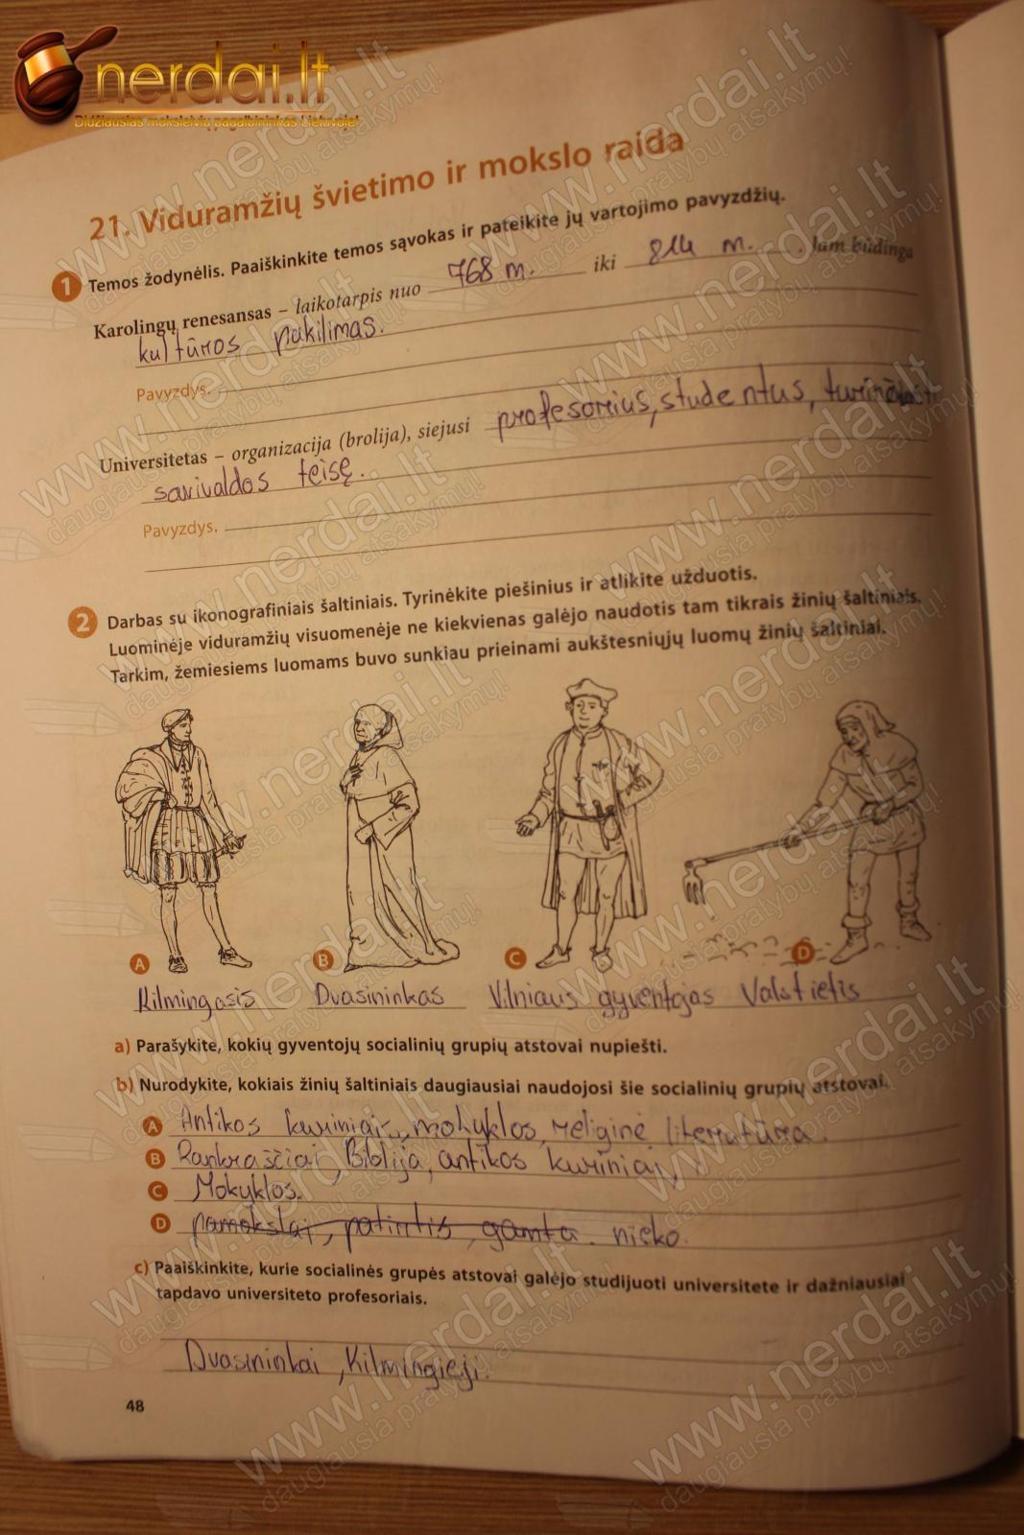 nerdai.lt
Didžiausias moksleivių pagalbininkas Lietuvoje!
21. Viduramžių švietimo ir mokslo raida
1 Temos žodynėlis. Paaiškinkite temos sąvokas ir pateikite jų vartojimo pavyzdžių.
Karolingų renesansas – laikotarpis nuo 768 m. iki 814 m. . Jam būdinga
kultūros pakilimas.
Pavyzdys.
Universitetas – organizacija (brolija), siejusi profesorius, studentus,
savivaldos teisę.
Pavyzdys.
2 Darbas su ikonografiniais šaltiniais. Tyrinėkite piešinius ir atlikite užduotis.
Luominėje viduramžių visuomenėje ne kiekvienas galėjo naudotis tam tikrais žinių šaltiniais.
Tarkim, žemiesiems luomams buvo sunkiau prieinami aukštesniųjų luomų žinių šaltiniai.
A B C D
Kilmingasis Dvasininkas Vilniaus gyventojas Valstietis
a) Parašykite, kokių gyventojų socialinių grupių atstovai nupiešti.
b) Nurodykite, kokiais žinių šaltiniais daugiausiai naudojosi šie socialinių grupių atstovai.
A Antikos kūriniais, mokyklos, religinė literatūra.
B Rankraščiai, Biblija, antikos kūriniai,
C Mokyklos.
D pamokslai, patirtis, gamta. nieko.
c) Paaiškinkite, kurie socialinės grupės atstovai galėjo studijuoti universitete ir dažniausiai
tapdavo universiteto profesoriais.
Dvasininkai, Kilmingieji.
48
www.nerdai.lt
daugiausia pratybų atsakymų!